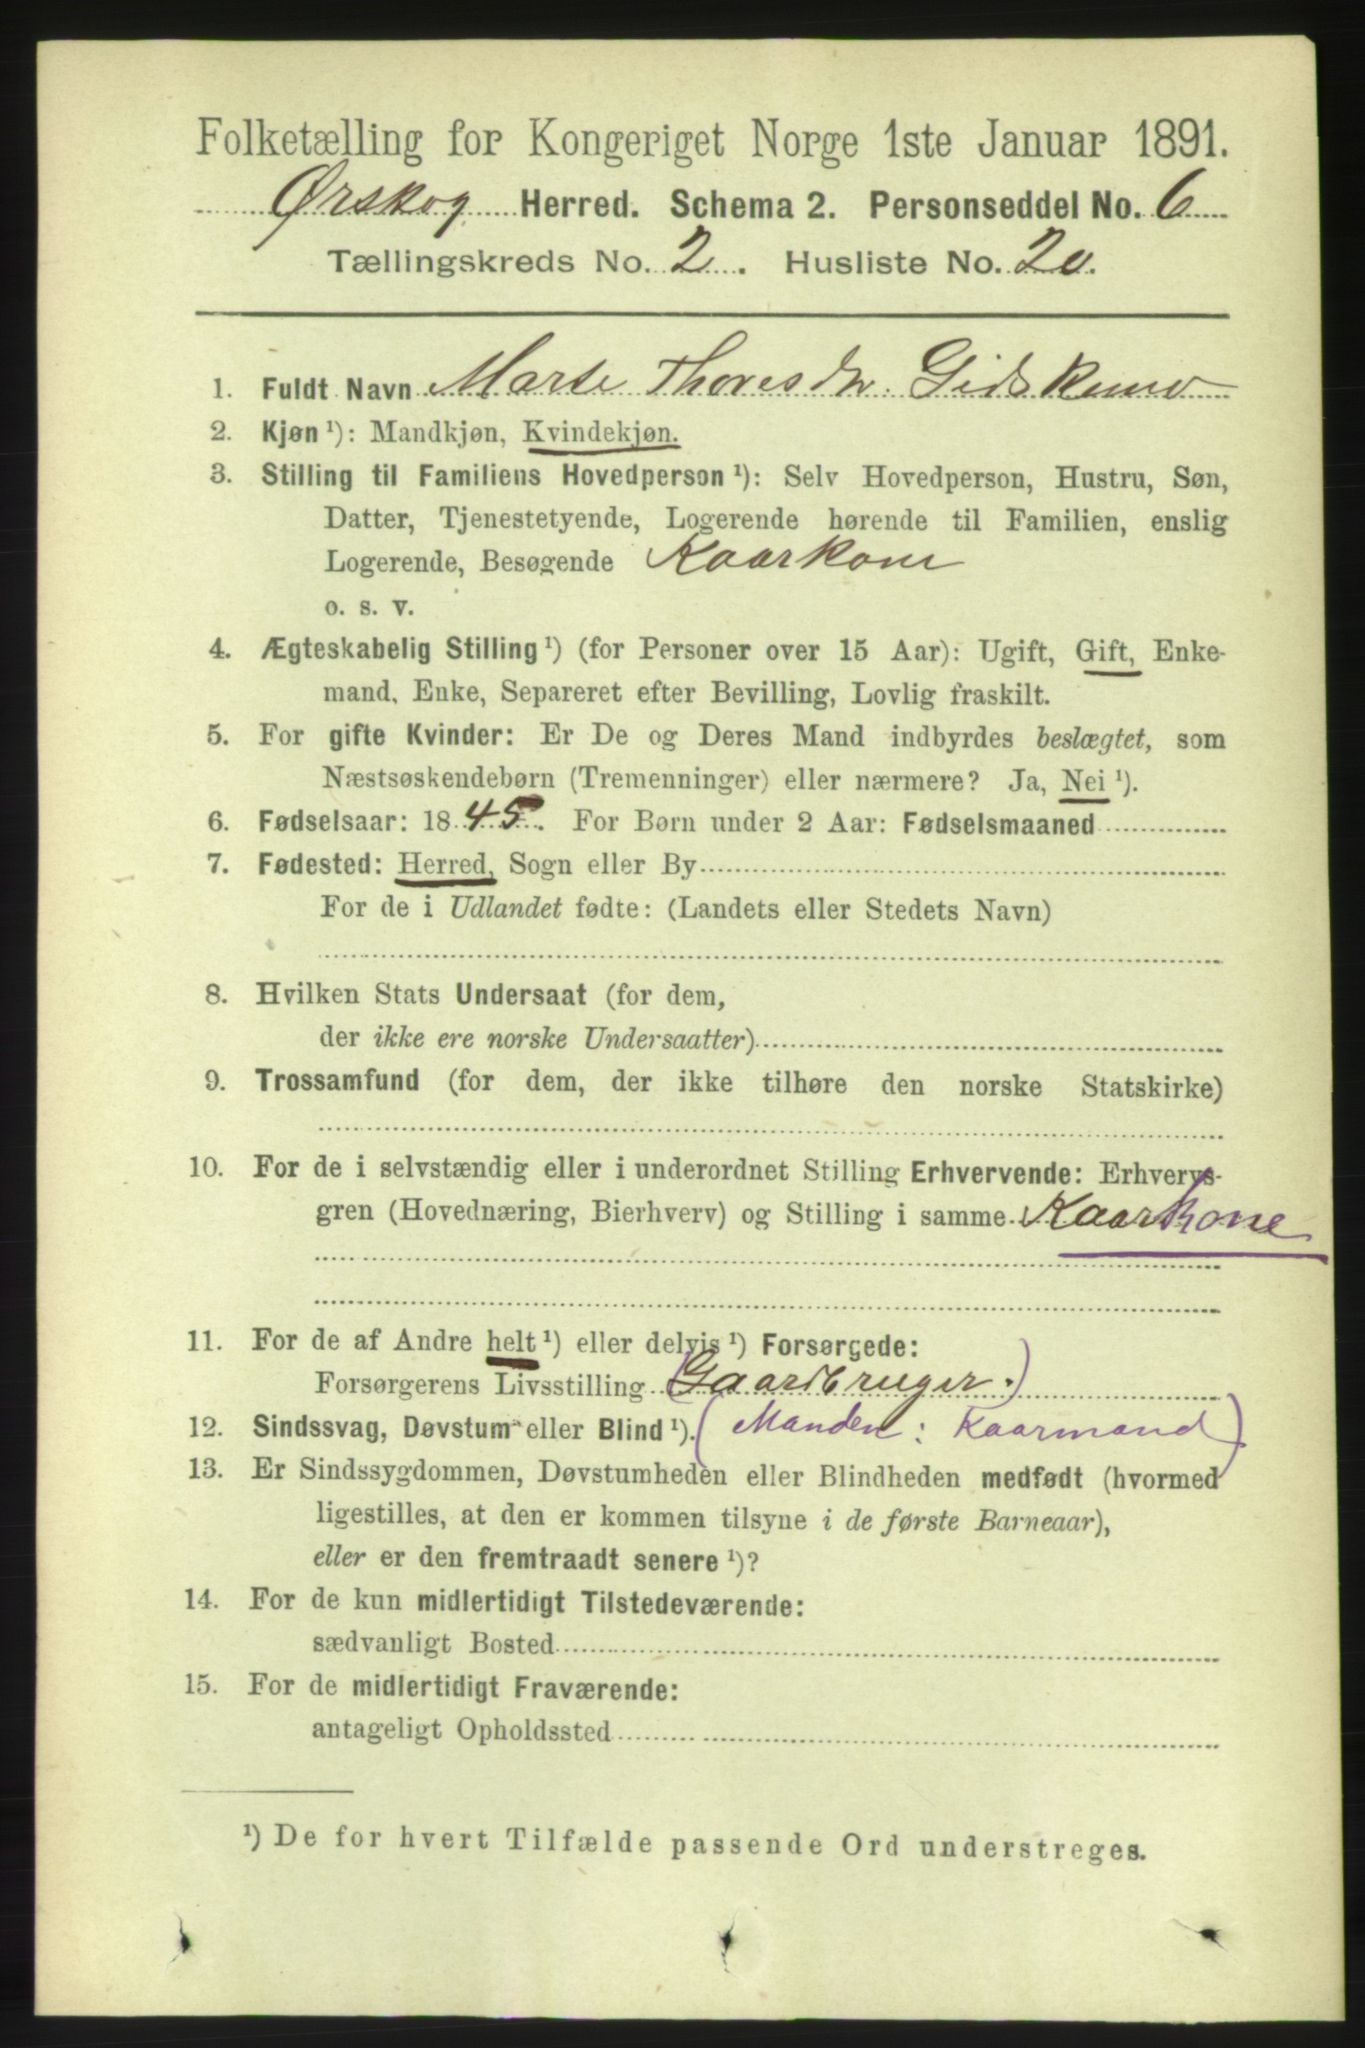 Folketælling for Kongeriget Norge 1ste Januar 1891.
Ørskog Herred. Schema 2. Personseddel No. 6
Tællingskreds No. 2. Husliste No. 20.
1. Fuldt Navn Marte Thoresdtr.
2. Kjøn ¹): Mandkjøn, Kvindekjøn.
3. Stilling til Familiens Hovedperson ¹): Selv Hovedperson, Hustru, Søn,
Datter, Tjenestetyende, Logerende hørende til Familien, enslig
Logerende, Besøgende Kaarkone
o. s. v.
4. Ægteskabelig Stilling ¹) (for Personer over 15 Aar): Ugift, Gift, Enke-
mand, Enke, Separeret efter Bevilling, Lovlig fraskilt.
5. For gifte Kvinder: Er De og Deres Mand indbyrdes beslægtet, som
Næstsøskendebørn (Tremenninger) eller nærmere? Ja, Nei ¹).
6. Fødselsaar: 1845. For Børn under 2 Aar: Fødselsmaaned
7. Fødested: Herred, Sogn eller By
For de i Udlandet fødte: (Landets eller Stedets Navn)
8. Hvilken Stats Undersaat (for dem,
der ikke ere norske Undersaatter)
9. Trossamfund (for dem, der ikke tilhøre den norske Statskirke)
10. For de i selvstændig eller i underordnet Stilling Erhvervende: Erhvervs-
gren (Hovednæring, Bierhverv) og Stilling i samme. Kaarkone
11. For de af Andre helt ¹) eller delvis ¹) Forsørgede:
Forsørgerens Livsstilling (Gaardbruger.)
12. Sindssvag, Døvstum eller Blind ¹). (Manden: Kaarmand)
13. Er Sindssygdommen, Døvstumheden eller Blindheden medfødt (hvormed
ligestilles, at den er kommen tilsyne i de første Barneaar),
eller er den fremtraadt senere ¹)?
14. For de kun midlertidigt Tilstedeværende:
sædvanligt Bosted
15. For de midlertidigt Fraværende:
antageligt Opholdssted
¹) De for hvert Tilfælde passende Ord understreges.